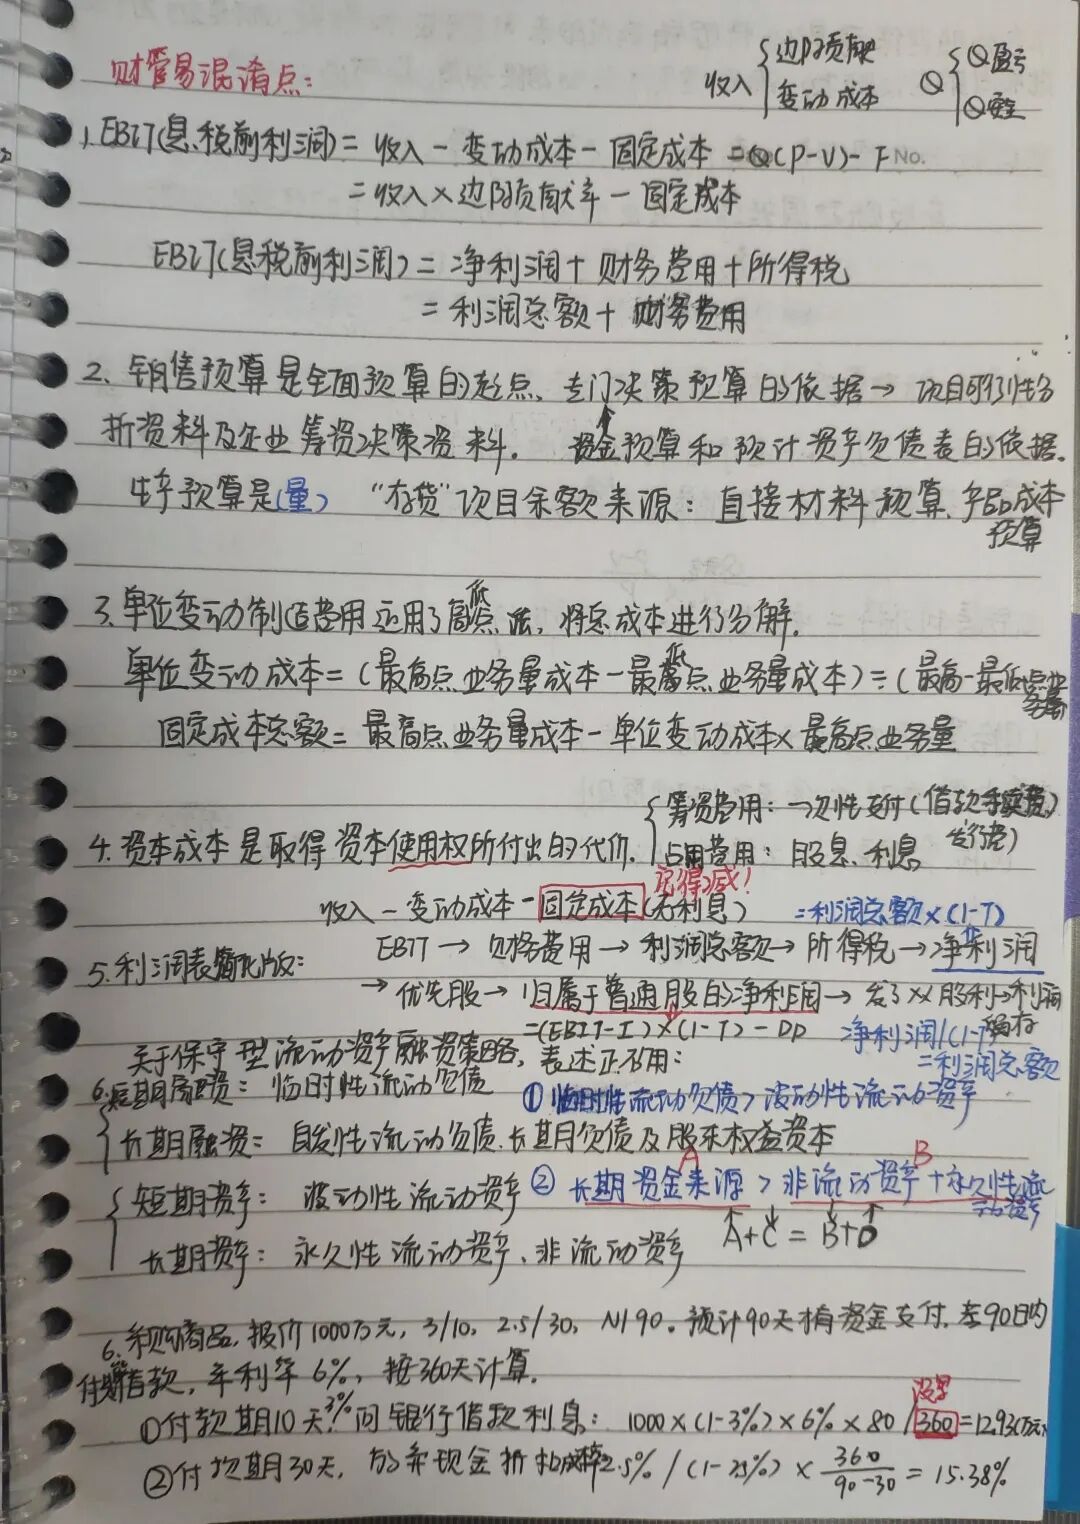 财管易混淆点:
收入 { 边际贡献
变动成本
Q { Q盈亏
Q安全
1. EBIT(息税前利润) = 收入 - 变动成本 - 固定成本 = Q(P-V) - F No.
= 收入×边际贡献率 - 固定成本
EBIT(息税前利润) = 净利润 + 财务费用 + 所得税
= 利润总额 + 财务费用
2、销售预算是全面预算的起点、专门决策预算的依据→项目可行性分
析资料及企业筹资决策资料。 资金预算和预计资产负债表的依据。
生产预算是(量) “存货”项目余额来源:直接材料预算、产品成本
预算
3、单位变动制造费用运用了高低点法,将总成本进行分解.
单位变动成本=(最高点业务量成本-最低点业务量成本)÷(最高-最低点业
务量)
固定成本总额= 最高点业务量成本-单位变动成本×最高点业务量
{ 筹资费用: 一次性支付(借款手续费)
发行费)
4. 资本成本是取得资本使用权所付出的代价. 占用费用: 股息、利息
记得减!
收入 - 变动成本 - 固定成本(无利息) =利润总额×(1-T)
5.利润表简化版: EBIT → 财务费用 → 利润总额 → 所得税 → 净利润
→ 优先股 → 归属于普通股的净利润 → 发了××股利→利润
留存
=(EBIT-I)×(1-T)-DP 净利润/(1-T)
=利润总额
关于保守型流动资产融资策略, 表述正确用:
6. 短期融资: 临时性流动负债 ① 临时性流动负债>波动性流动资产
长期融资: 自发性流动负债、长期负债及股东权益资本
A B
{ 短期资产: 波动性流动资产 ② 长期资金来源 > 非流动资产+永久性流
动资产
A+C = B+D
长期资产: 永久性流动资产、非流动资产
6. 采购商品, 报价1000万元, 3/10, 2.5/30, N/90。预计90天才有资金支付. 在90日内
付款需借款, 年利率6%, 按360天计算.
①付款期10天3% 问银行借款利息: 1000×(1-3%)×6%×80/360=12.93(万元)
②付款期30天, 放弃现金折扣成本率2.5%/(1-2.5%)× 360/90-30 = 15.38%